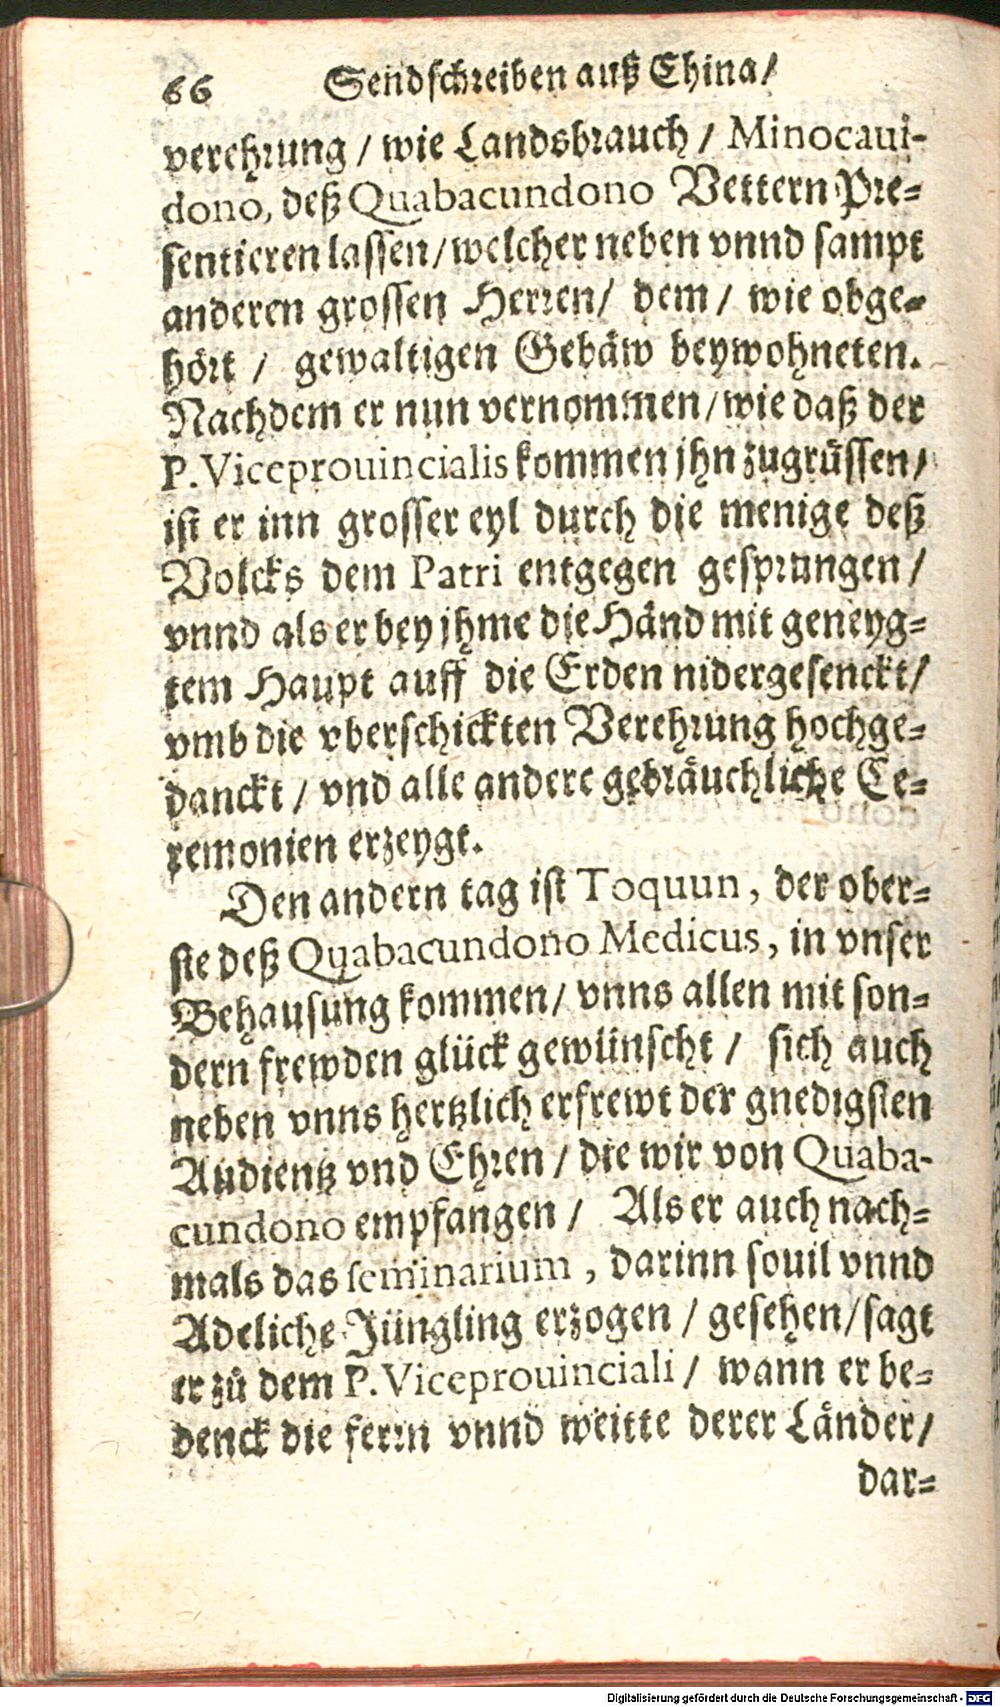 66 Sendschreiben auß China/
verehrung / wie Landsbrauch / Minocaui-
dono, deß Quabacundono Vettern Pre-
sentieren lassen/ welcher neben vnnd sampt
anderen grossen Herren/ dem / wie obge-
hört / gewaltigen Gebäw beywohneten.
Nachdem er nun vernommen/ wie daß der
P. Viceprouincialis kommen jhn zugrüssen/
ist er inn grosser eyl durch die menige deß
Volcks dem Patri entgegen gesprungen /
vnnd als er bey jhme die Händ mit geneyg-
tem Haupt auff die Erden nidergesenckt/
vmb die vberschickten Verehrung hochge-
danckt / vnd alle andere gebräuchliche Ce-
remonien erzeygt.
Den andern tag ist Toquun, der ober-
ste deß Quabacundono Medicus, in vnser
Behausung kommen/ vnns allen mit son-
dern frewden glück gewünscht / sich auch
neben vnns hertzlich erfrewt der gnedigsten
Audientz vnd Ehren / die wir von Quaba-
cundono empfangen / Als er auch nach-
mals das seminarium, darinn souil vnnd
Adeliche Jüngling erzogen / gesehen/ sagt
er zů dem P. Viceprouinciali / wann er be-
denck die ferrn vnnd weitte derer Länder/
dar-
Digitalisierung gefördert durch die Deutsche Forschungsgemeinschaft - DFG